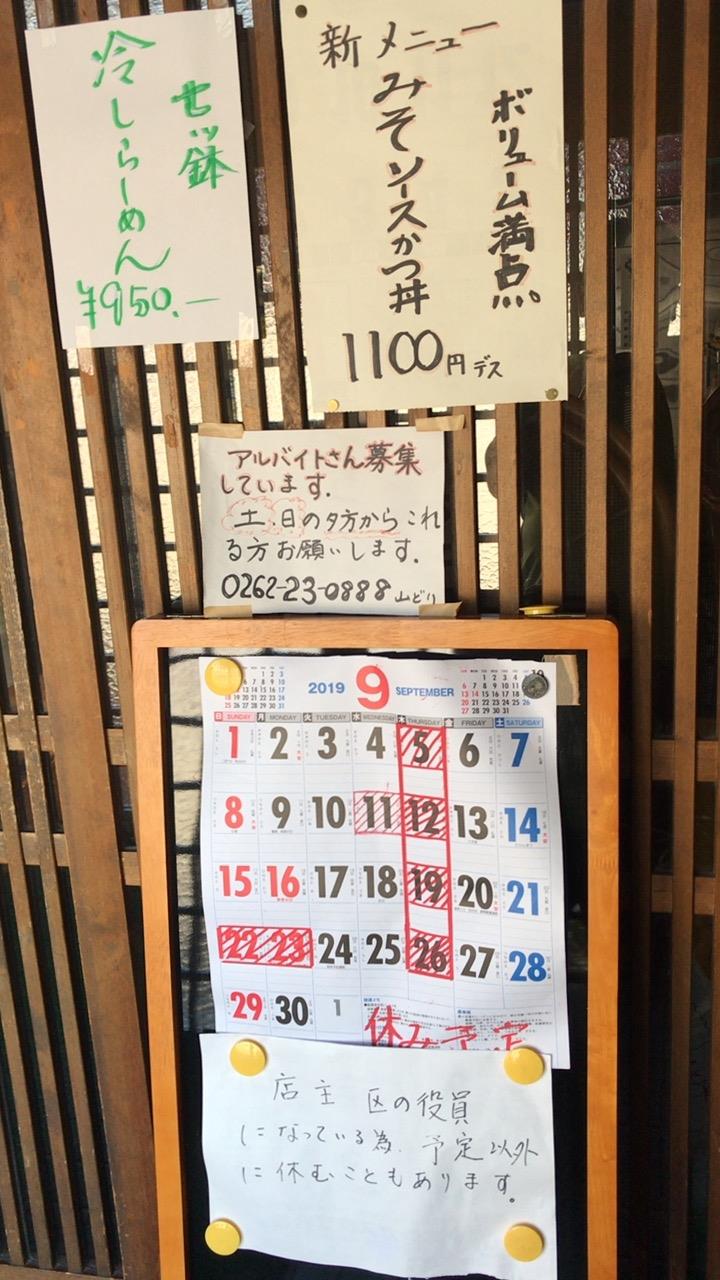 セッ鉢
冷しらーめん
¥950.ー
ボリューム満点。
新メニュー
みそソースかつ丼
1100円デス
アルバイトさん募集
しています.
土.日の夕方からこれ
る方お願いします.
0262-23-0888 山どり
2019 9 SEPTEMBER
日 SUNDAY 月 MONDAY 火 TUESDAY 水 WEDNESDAY 木 THURSDAY 金 FRIDAY 土 SATURDAY
1 2 3 4 5 6 7
8 9 10 11 12 13 14
15 16 17 18 19 20 21
22 23 24 25 26 27 28
29 30 1
休み予定
店主 区の役員
になっている為、予定以外
に休むこともあります。